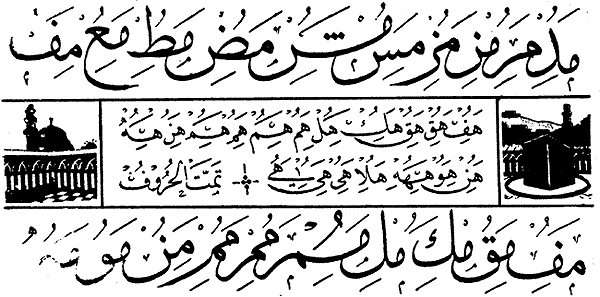 مَدِ مِرَ مُزِ مُزِ مَسِ مُشُ مَضُ مَطِ مَعُ مَفَ
هَفِ هَقُ هِقِ هِكُ هَلُ هِمُ هِمُ هَمُ هِمُ هِنَ هِهُ
هُنِ هُوَ هِهِ هَلَا هِى هَىِ هُى تَمَّتِ الْحُرُوفُ
مَفُ مَقُ مِكَ مُلِ مُمِ مُمِ مُمِ مِنُ مَوُ